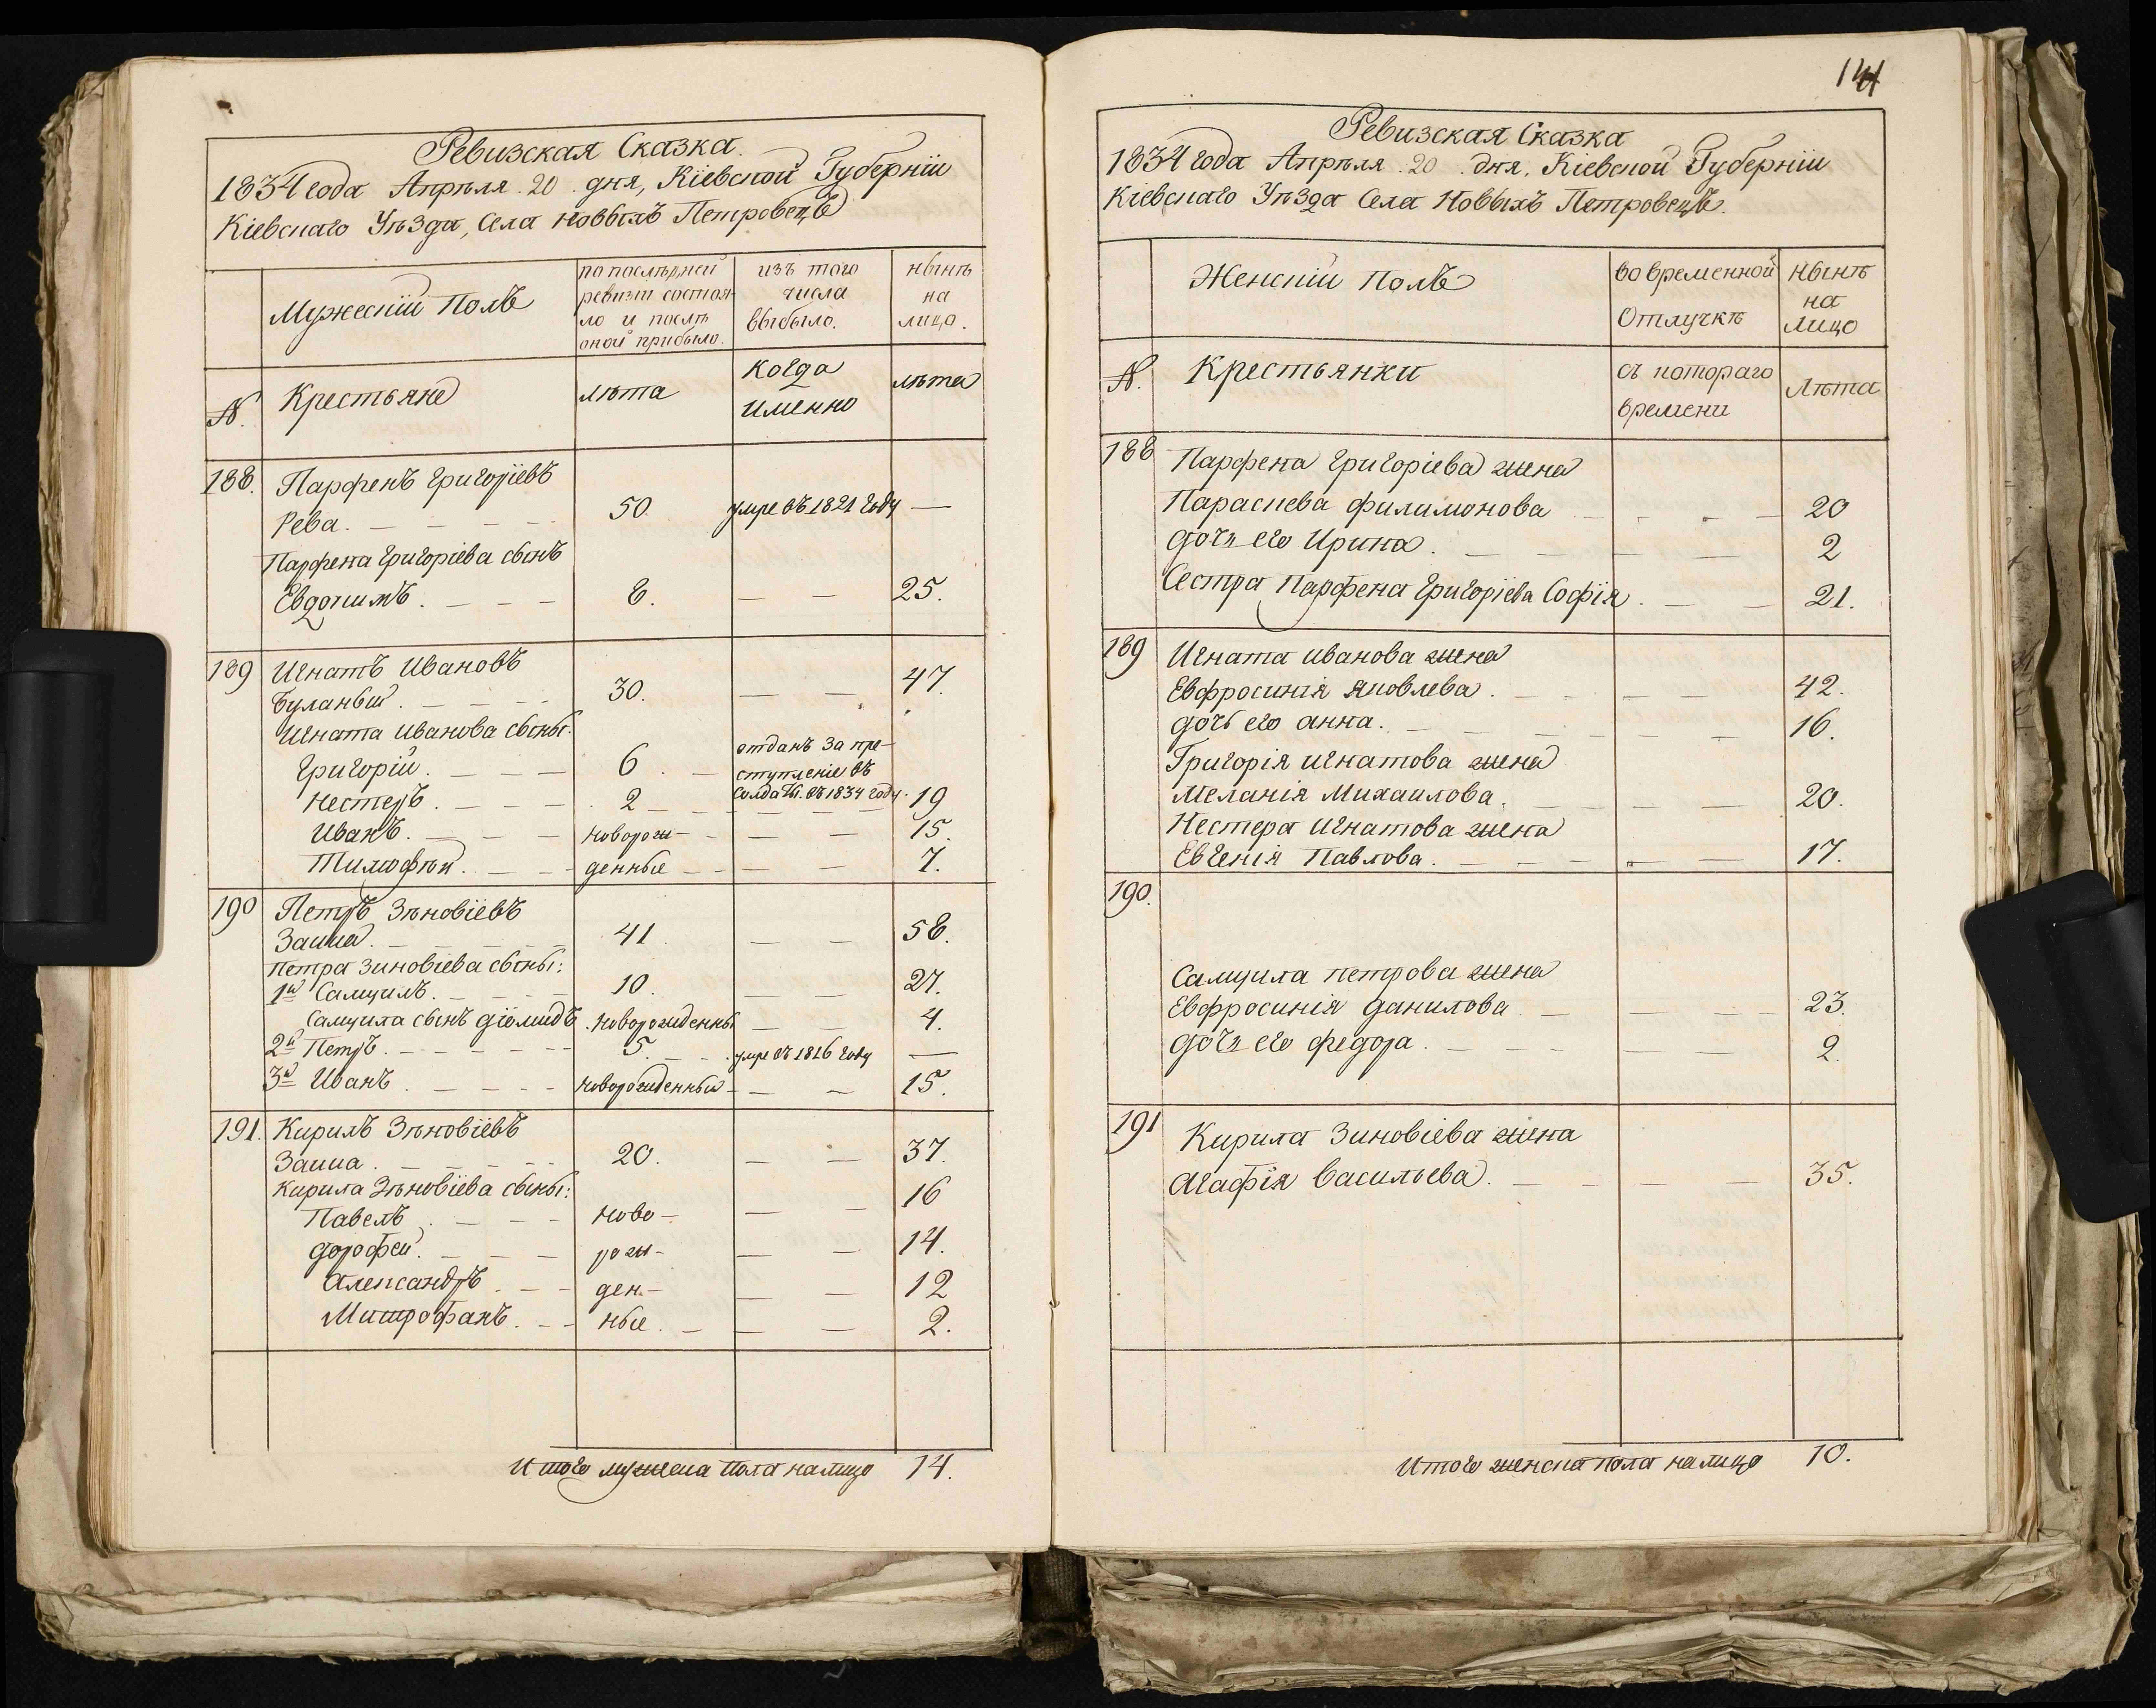 Ревизская Сказка.
1834 года Апрѣля 20 дня, Кіевской Губерніи
Кіевскаго Уѣзда, Села Новыхъ Петровецъ
Мужескій Полъ
по послѣдней
ревизіи состоя-
ло и послѣ
оной прибыло.
изъ того
числа
выбыло.
нынѣ
на
лицо.
№.
Крестьяне
лѣта
Когда
именно
лѣта
188. Парфенъ Григоріевъ
Рева. 50 умре въ 1821 году —
Парфена Григоріева сынъ
Евдокимъ. 8. — — 25.
189 Игнатъ Ивановъ
Буланый. 30. — — 47.
Игната Иванова сыны:
Григорій. 6. отданъ за пре-
ступленіе въ
солдаты. въ 1834 году.
Нестеръ. 2 — 19
Иванъ. новорож- — — 15.
Тимофѣй. денные — — 7.
190 Петръ Зѣновіевъ
Заика. 41. — — 58.
Петра Зиновіева сыны:
1й Самуилъ. 10. — — 27.
Самуила сынъ Діомидъ. новорожденный — — 4.
2й Петръ. 5. умре въ 1816 году —
3й Иванъ. новорожденный — — 15.
191. Кирилъ Зѣновіевъ
Заика. 20. — — 37.
Кирила Зѣновіева сыны:
Павелъ ново- — — 16
Дорофей. рож- — — 14.
Александръ. ден- — — 12
Митрофанъ. ные. — — 2.
Итого мужеска пола налицо 14.
141
Ревизская Сказка
1834 года Апрѣля 20 дня, Кіевской Губерніи
Кіевскаго Уѣзда Села Новыхъ Петровецъ.
Женскій Полъ
во временной
Отлучкѣ
нынѣ
на
лицо
№.
Крестьянки
съ котораго
времени
Лѣта
188 Парфена Григоріева жена
Параскева Филимонова 20
дочь его Ирина. 2
Сестра Парфена Григоріева Софія. 21.
189 Игната Иванова жена
Евфросинія Яковлева. 42.
дочь его Анна. 16.
Григорія Игнатова жена
Меланія Михаилова. 20.
Нестера Игнатова жена
Евгенія Павлова. 17.
190.
Самуила Петрова жена
Евфросинія Данилова 23.
дочь его Федора. 2.
191 Кирила Зиновіева жена
Агафія Васильева. 35.
Итого женска пола налицо 10.